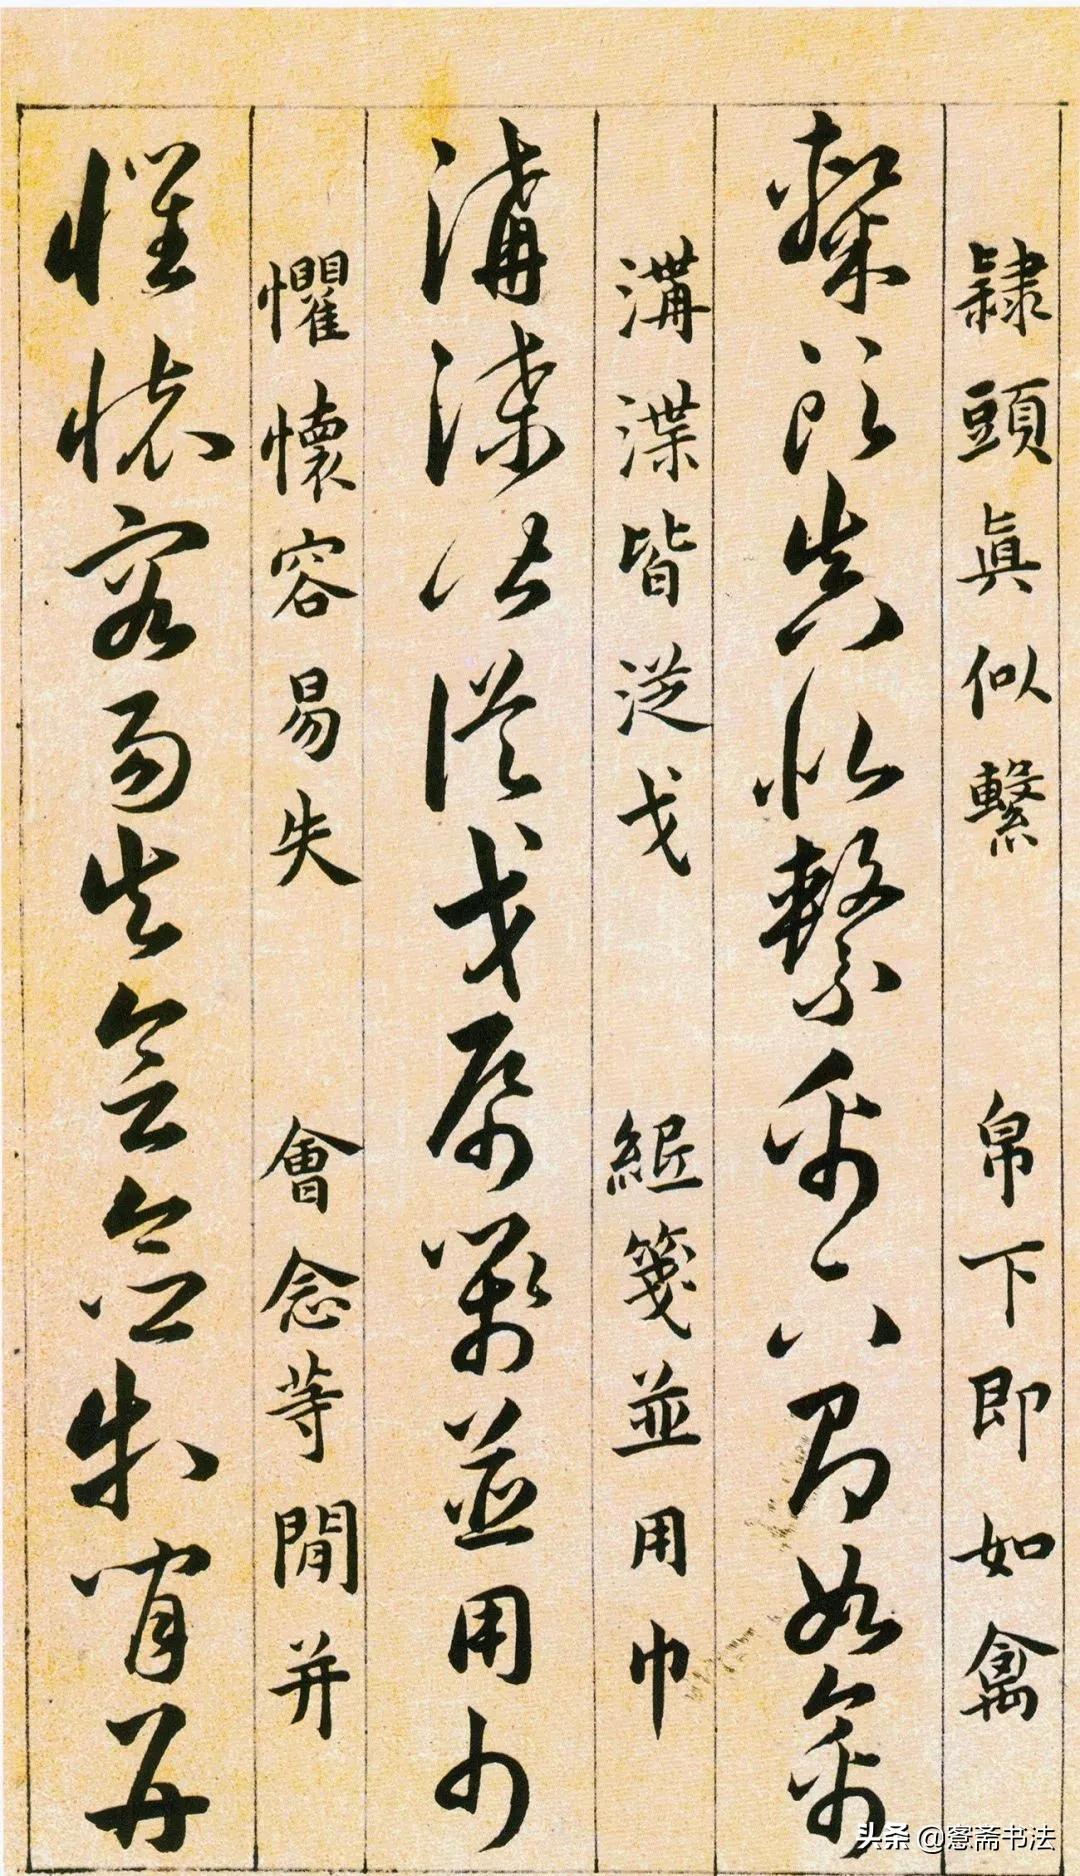 隷頭眞似繫 帛下即如禽
隷頭眞似繫帛下即如禽
溝渫皆従戈 紙箋並用巾
溝渫皆従戈紙箋並用巾
懼懷容易失 會念等閒并
懼懷容易失會念等閒并
头条 @窓斋书法